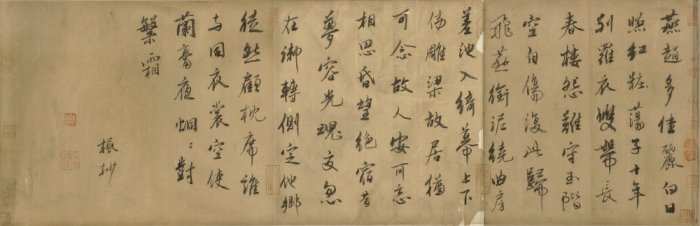 燕趙多佳麗白日
照紅粧蕩子十年
別羅衣雙帶長
春樓怨難守玉階
空自傷復此歸
飛燕銜泥繞曲房
差池入綺幕上下
傍雕梁故居猶
可念故人安可忘
相思昏望絕宿昔
夢容光魂交忽
在御轉側定他鄉
徒然顧枕席誰
与同衣裳空使
蘭膏夜炯〻對
繁霜